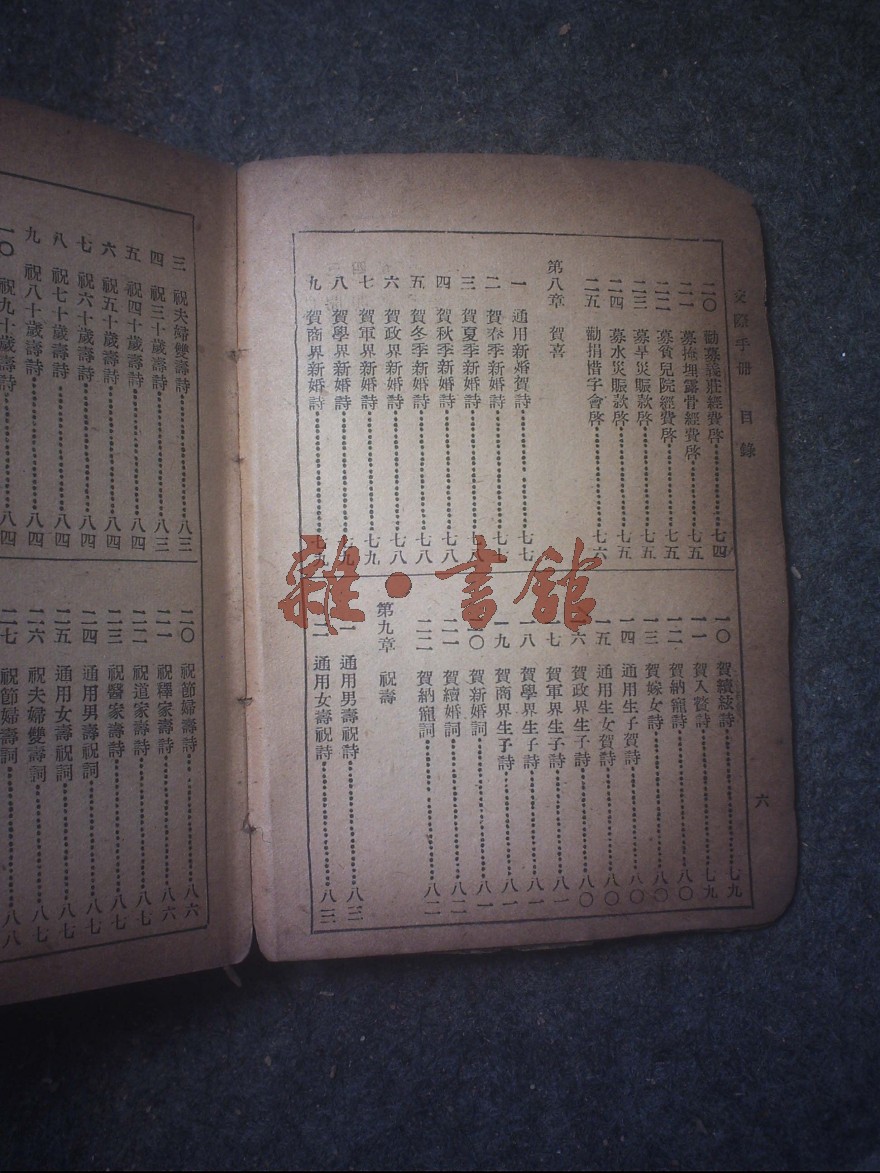 交際手册 目錄
二〇 勸募義莊經費啓 七四
二一 募掩埋露骨經費啓 七五
二二 募貧兒院經費啓 七五
二三 募旱災賑款啓 七五
二四 募水災賑款啓 七五
二五 勸捐惜字會啓 七六
第八章 賀喜
一 通用新婚賀詩 七七
二 賀春季新婚詩 七七
三 賀夏季新婚詩 七八
四 賀秋季新婚詩 七八
五 賀冬季新婚詩 七八
六 賀政界新婚詩 七八
七 賀軍界新婚詩 七九
八 賀學界新婚詩 七九
九 賀商界新婚詩 七九
一〇 賀續絃詩 七九
一一 賀入贅詩 七九
一二 賀納寵詩 八〇
一三 賀嫁女詩 八〇
一四 通用生子賀詩 八〇
一五 通用生女賀詩 八〇
一六 賀政界生子詩 八〇
一七 賀軍界生子詩 八一
一八 賀學界生子詩 八一
一九 賀商界生子詩 八一
二〇 賀新婚詞 八一
二一 賀續婚詞 八二
二二 賀納寵詞 八二
第九章 祝壽
一 通用男壽祝詩 八三
二 通用女壽祝詩 八三
六
三 祝夫婦雙壽詩 八三
四 祝三十歲壽詩 八三
五 祝四十歲壽詩 八四
六 祝五十歲壽詩 八四
七 祝六十歲壽詩 八四
八 祝七十歲壽詩 八四
九 祝八十歲壽詩 八四
一〇 祝九十歲壽詩 八四
二〇 祝節婦壽詩 八六
二一 祝釋家壽詩 八六
二二 祝道家壽詩 八七
二三 祝醫家壽詩 八七
二四 通用男壽祝詞 八七
二五 通用女壽祝詞 八七
二六 祝夫婦雙壽詞 八七
二七 祝節婦壽詞 八八
雜·書館